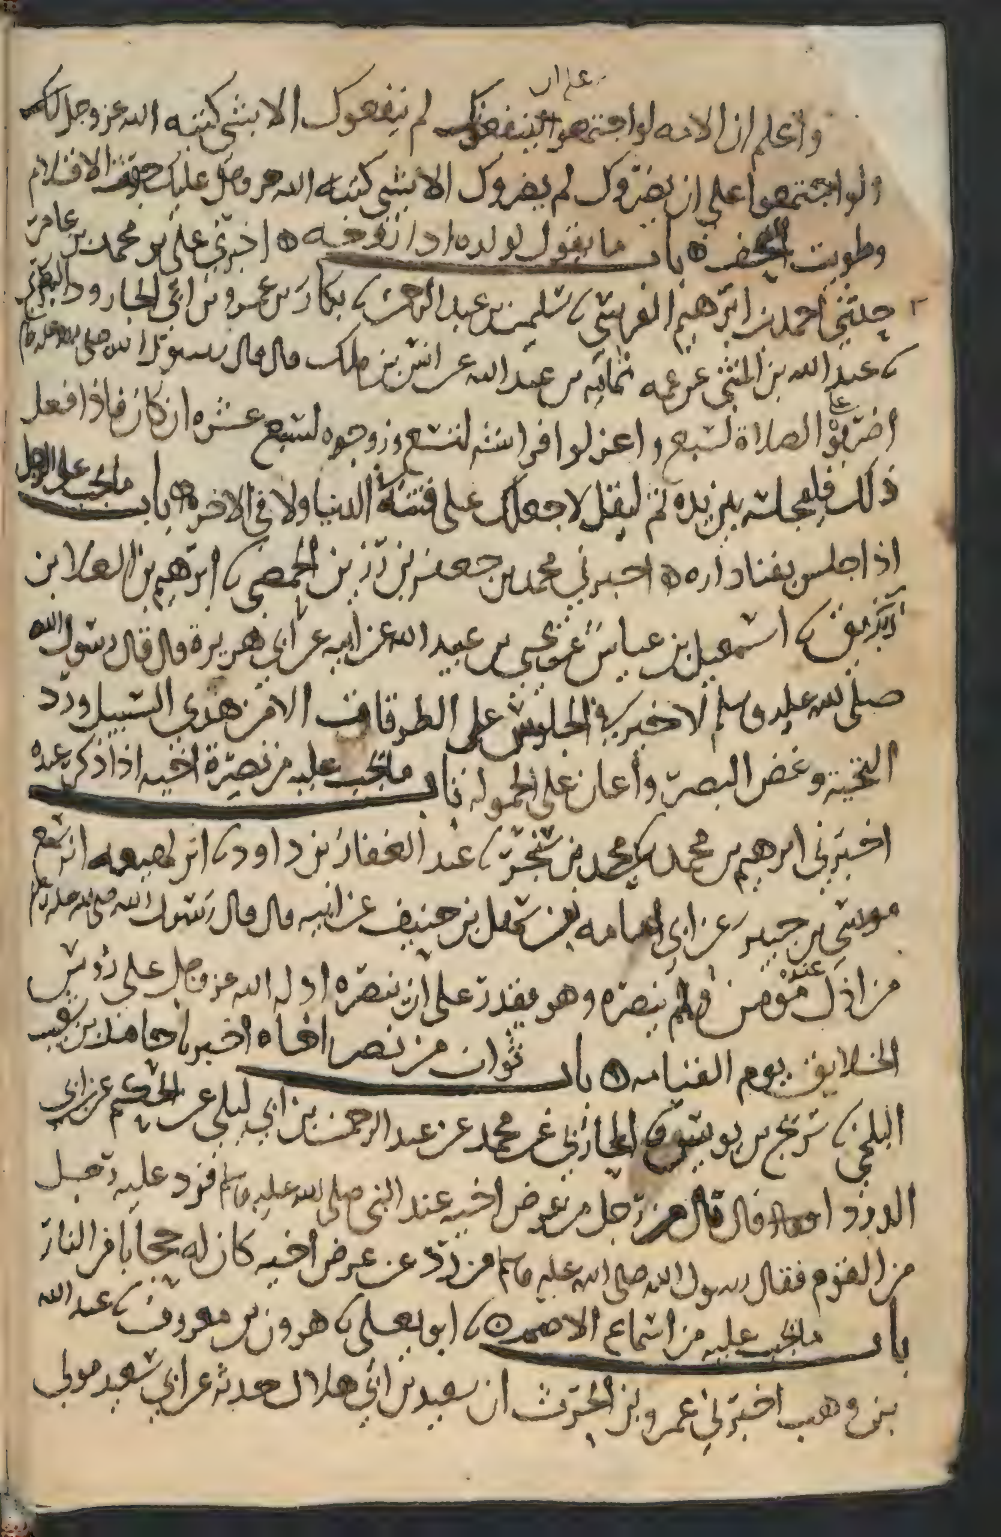 على ان
واعلم ان الامه لو اجتمعوا لينفعوك لم ينفعوك الا بشي كتبه الله عز وجل لك
ولو اجتمعوا على ان يضروك لم يضروك الا بشي كتبه الله عز وجل عليك جفت الاقلام
وطويت الصحف باب ما يقول لولده اذا زوجه اخبرني علي بن محمد بن عامر
حدثني احمد بن ابرهيم القرشي سليمن بن عبد الرحمن بكار بن عمرو بن ابي الجارود البصري
عبد الله بن المثنى عن عمه ثمامه بن عبد الله عن انس بن ملك قال قال رسول الله صلى الله عليه وسلم
اضربوا على الصلاة لسبع واعزلوا فراشه لتسع وزوجوه لسبع عشره ان كان فاذا فعل
ذلك فليجلسه بين يديه ثم ليقل لا جعلك على فتنة في الدنيا ولا في الاخره باب ما يجب على الرجل
اذا جلس بفنا داره اخبرني محمد بن جعفر بن رزين الحمصي ابرهيم بن العلا بن
زبريق اسمعيل بن عياش عن يحيى بن عبيد الله عن ابيه عن ابي هريرة قال قال رسول الله
صلى الله عليه وسلم لا خير في الجلوس على الطرقات الا من هدى السبيل ورد
التحية وغض البصر واعان على الحموله باب ما يجب عليه من نصرة اخيه اذا ذكر عنده
اخبرني ابرهيم بن محمد محمد بن سنجر عبد الغفار بن داود ابن لهيعه
موسى بن جبير عن ابي امامه بن سهل بن حنيف عن ابيه قال قال رسول الله صلى الله عليه وسلم
من اذل عنده مؤمن فلم ينصره وهو يقدر على ان ينصره اذله الله عز وجل على رؤس
الخلايق يوم القيامه باب ثواب من نصر اخاه اخبرنا حامد بن شعيب
البلخي سريج بن يونس الحارثي عن محمد بن عبد الرحمن بن ابي ليلى عن الحكم عن ابن ابي
الدردا قال نال رجل من عرض اخيه عند النبي صلى الله عليه وسلم فرد عليه رجل
من القوم فقال رسول الله صلى الله عليه وسلم من رد عن عرض اخيه كان له حجابا من النار
باب ما يجب عليه من اسماع الاصم ابو يعلى هرون بن معروف عبد الله
بن وهب اخبرني عمرو بن الحرث ان سعيد بن ابي هلال حدثه عن ابي سعيد مولى